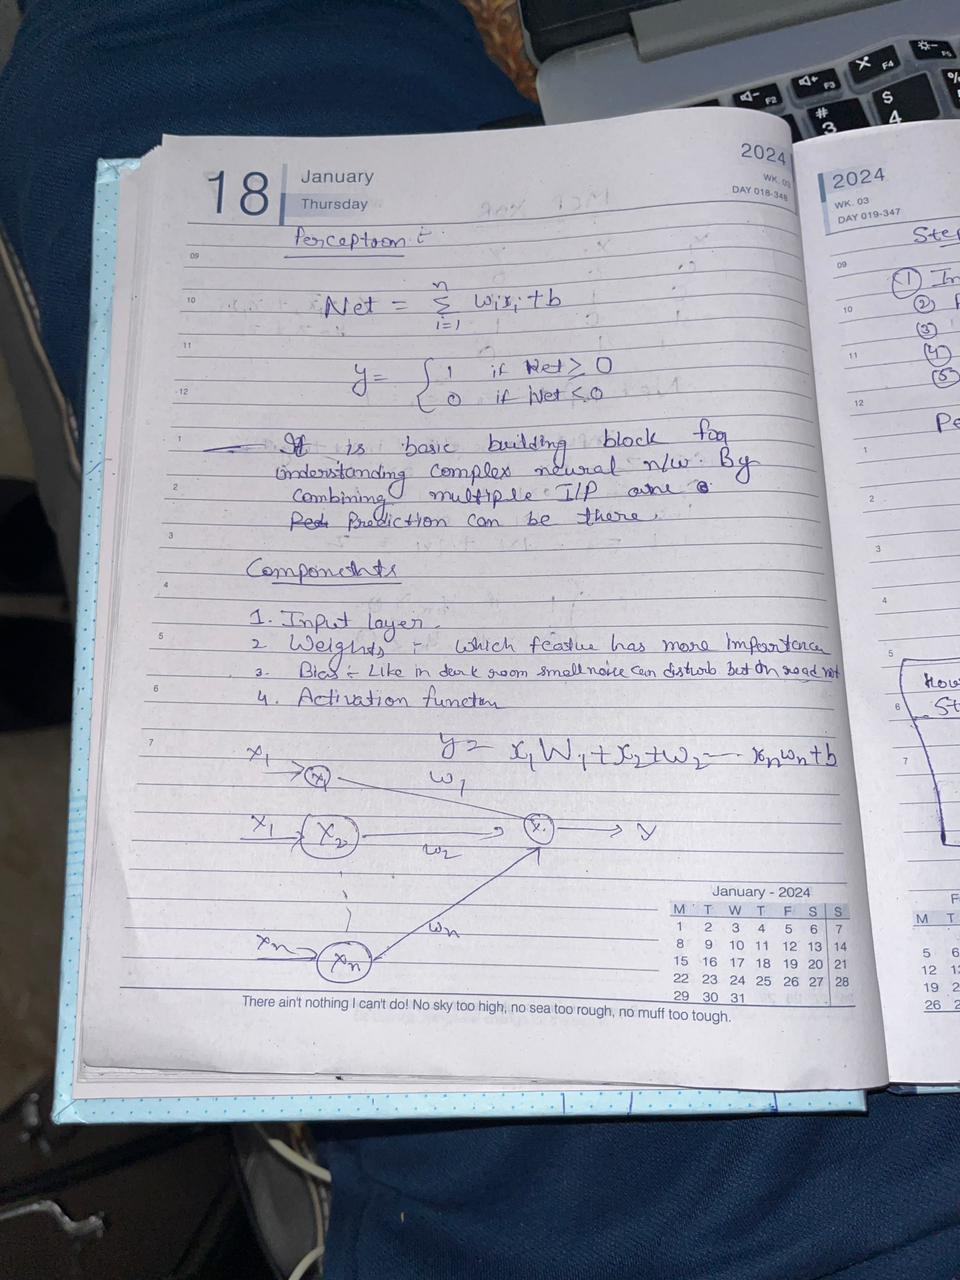 18 January
Thursday
2024
WK. 03
DAY 018-348
Perceptron :-
09
10
11
12
1
2
3
4
5
6
7
Net = n Σ i=1 wixi + b
y = { 1 if Net ≥ 0
0 if Net ≤ 0
It is basic building block for
understanding complex neural n/w. By
combining multiple I/P are
Prediction can be there.
Components
1. Input layer.
2 Weights :- which featue has more Importance
3. Bias :- Like in dark room small noice can disturb but on road not
4. Activation function
y = x1W1 + x2 + w2 --- xnwn + b
x1 x1 w1
x1 x2 w2 x. y
xn xn wn
January - 2024
M T W T F S S
1 2 3 4 5 6 7
8 9 10 11 12 13 14
15 16 17 18 19 20 21
22 23 24 25 26 27 28
29 30 31
There ain't nothing I can't do! No sky too high, no sea too rough, no muff too tough.
2024
WK. 03
DAY 019-347
09
10
11
12
1
2
3
4
5
6
7
Step
① In
②
③
④
⑤
Pe
How
St
F
M T
5 6
12
19
26
# 3
$ 4
F2
F3
F4
F5
%